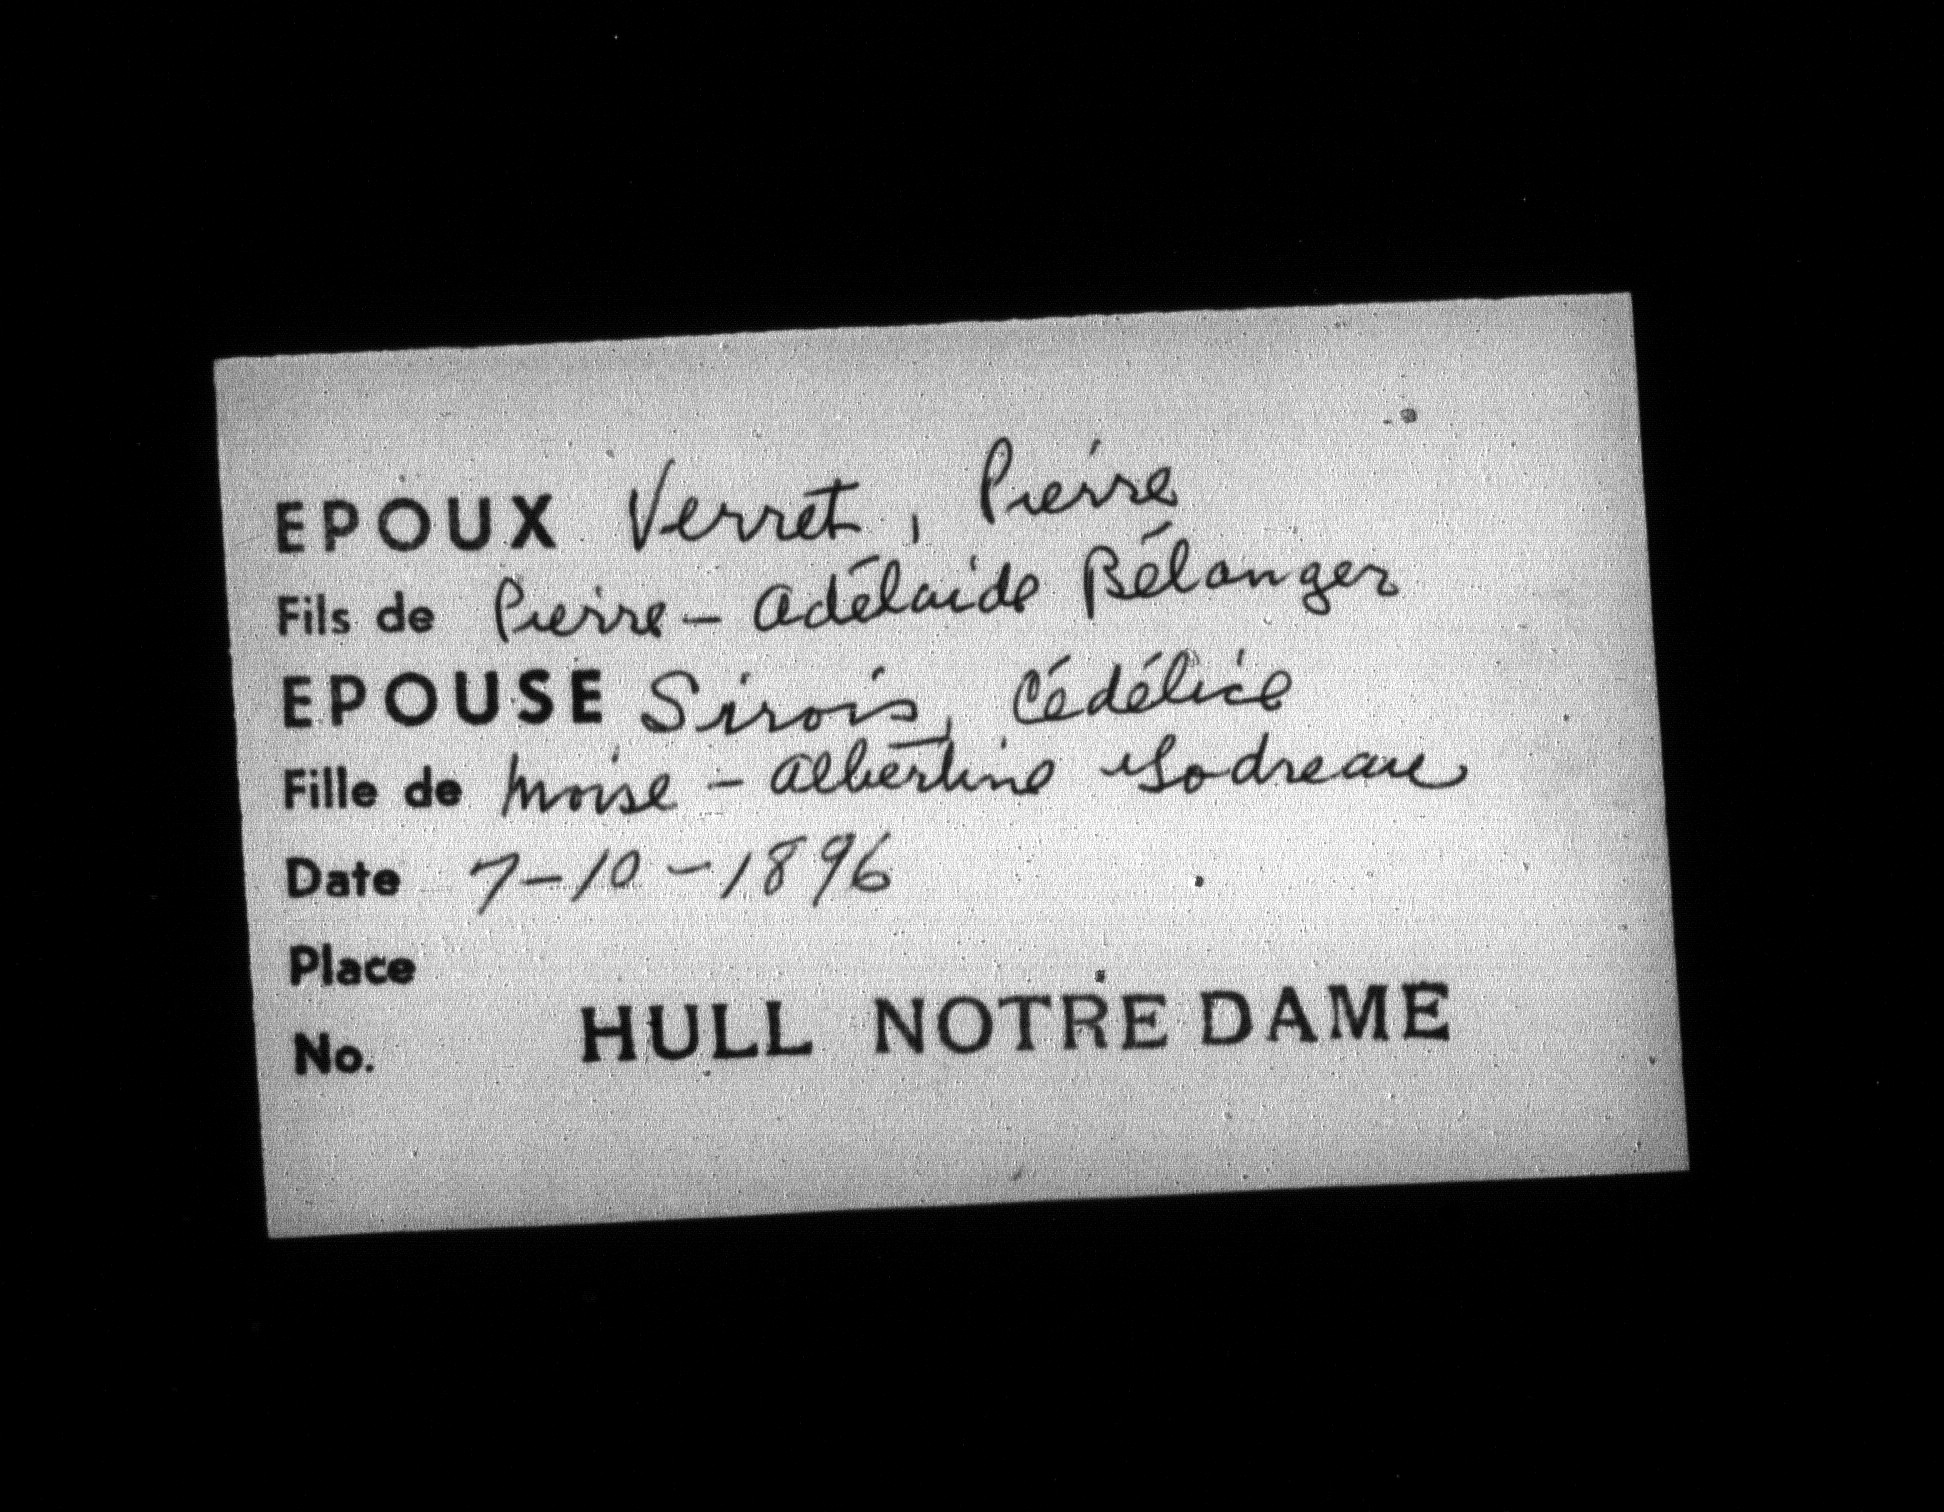 EPOUX Verret, Pierre
Fils de Pierre - Adélaide Bélanger
EPOUSE Sirois, Cédélice
Fille de Moise - Albertine
Date 7-10-1896
Place
No. HULL NOTRE DAME